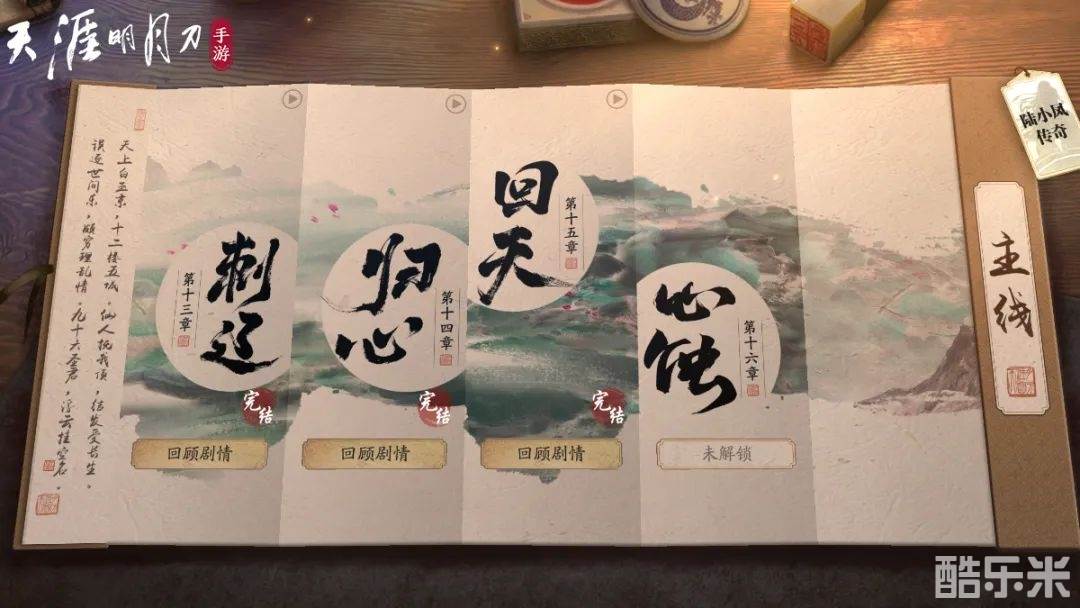 天涯明月刀
手游
陆小凤
传奇
主线
天上白玉京，十二楼五城，仙人抚我顶，结发受长生，
误逐世间乐，颇穷理乱情，九十六圣君，浮云挂空名。
刺辽
第十三章
完结
回顾剧情
归心
第十四章
完结
回顾剧情
回天
第十五章
完结
回顾剧情
心蚀
第十六章
未解锁
酷乐米